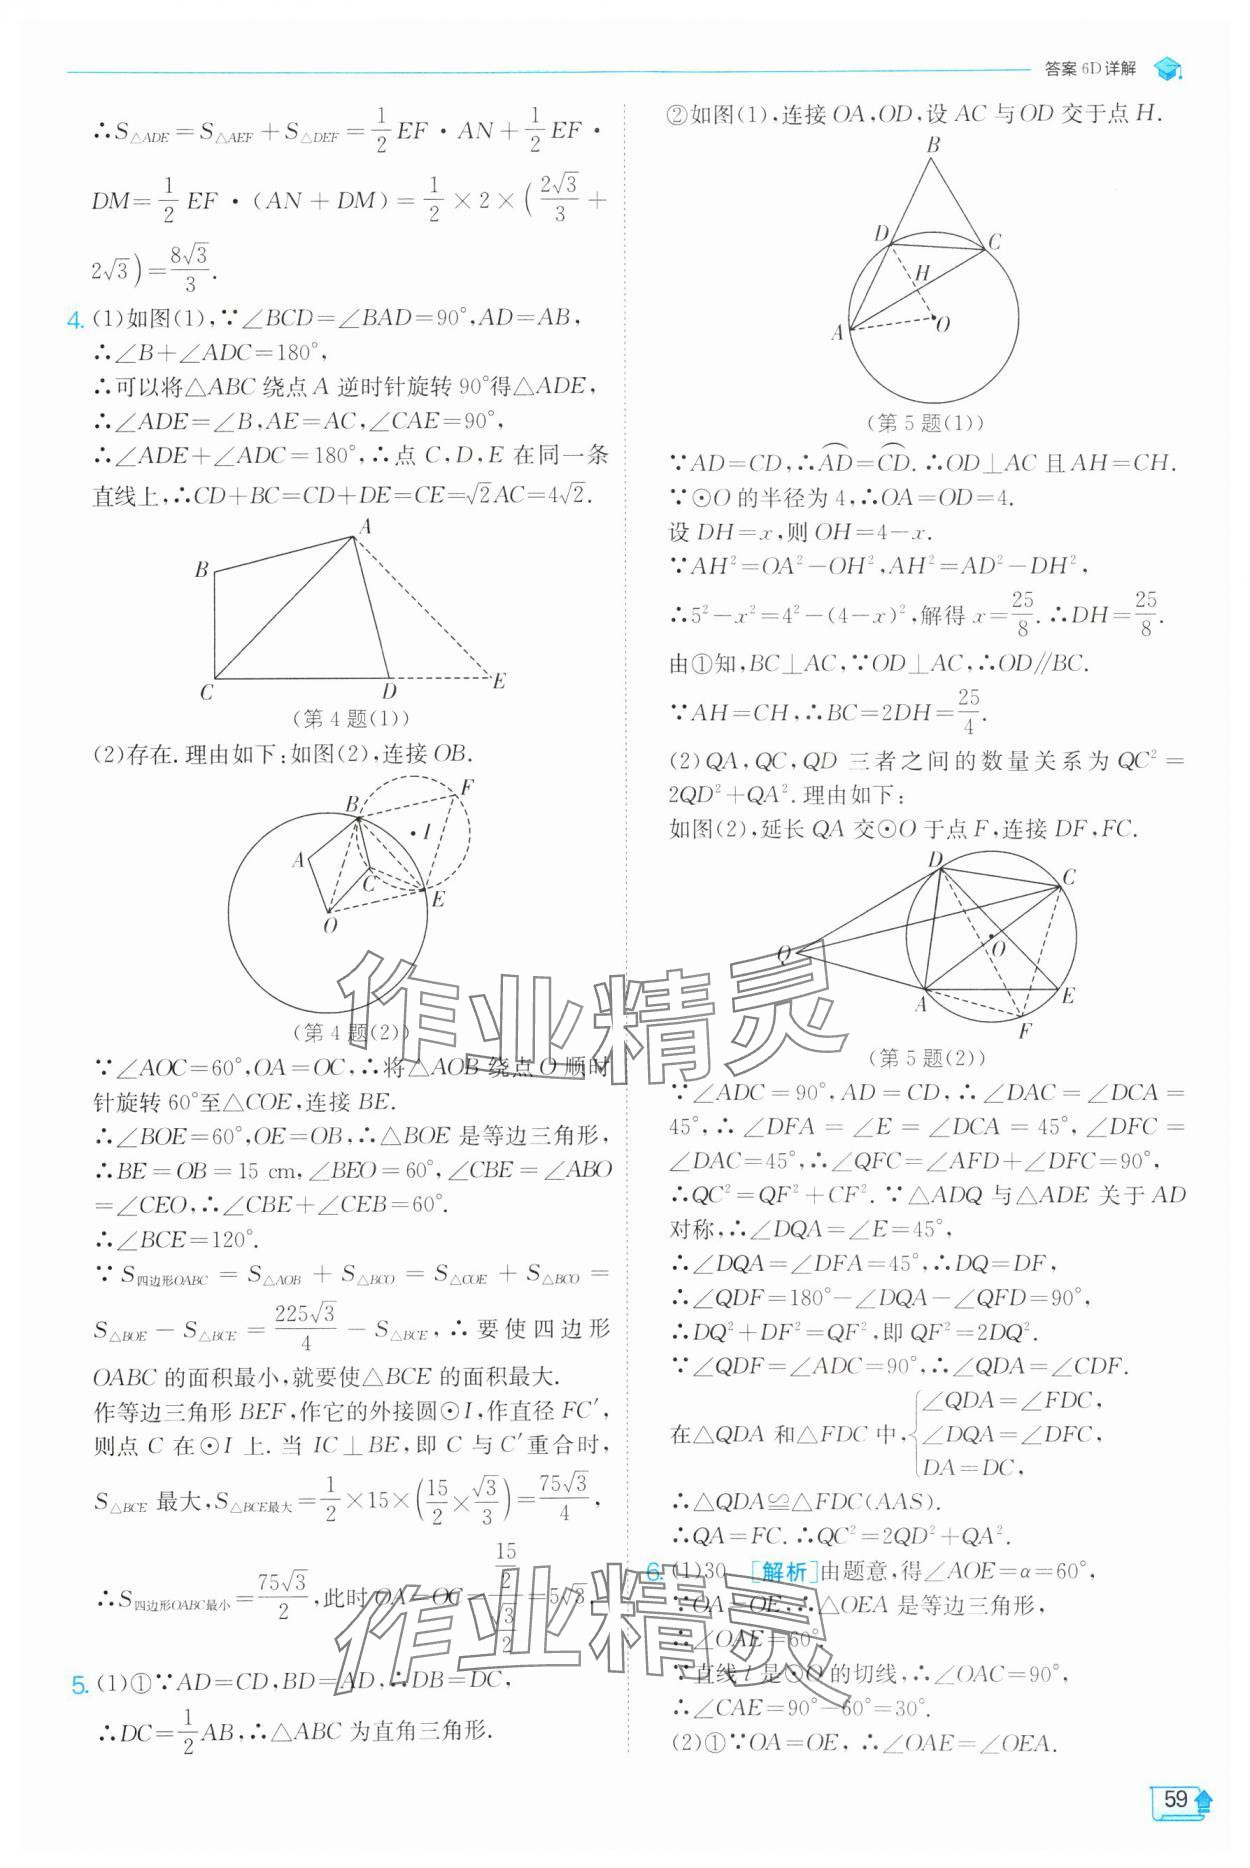 答案 6D 详解
∴S△ADE=S△AEF+S△DEF=1/2 EF·AN+1/2 EF·
DM=1/2 EF·(AN+DM)=1/2×2×(2√3/3+
2√3)=8√3/3.
4. (1)如图(1),∵∠BCD=∠BAD=90°,AD=AB,
∴∠B+∠ADC=180°,
∴可以将△ABC绕点A逆时针旋转90°得△ADE,
∴∠ADE=∠B,AE=AC,∠CAE=90°,
∴∠ADE+∠ADC=180°,∴点C,D,E在同一条
直线上,∴CD+BC=CD+DE=CE=√2AC=4√2.
A
B
C
D
E
(第4题(1))
(2)存在.理由如下:如图(2),连接OB.
B
F
I
A
C
E
O
(第4题(2))
∵∠AOC=60°,OA=OC,∴将△AOB绕点O顺时
针旋转60°至△COE,连接BE.
∴∠BOE=60°,OE=OB,∴△BOE是等边三角形,
∴BE=OB=15 cm,∠BEO=60°,∠CBE=∠ABO
=∠CEO,∴∠CBE+∠CEB=60°.
∴∠BCE=120°.
∵S四边形OABC=S△AOB+S△BCO=S△COE+S△BCO=
S△BOE-S△BCE=225√3/4-S△BCE,∴要使四边形
OABC的面积最小,就要使△BCE的面积最大.
作等边三角形BEF,作它的外接圆⊙I,作直径FC′,
则点C在⊙I上.当IC⊥BE,即C与C′重合时,
S△BCE最大,S△BCE最大=1/2×15×(15/2×√3/3)=75√3/4,
∴S四边形OABC最小=75√3/2,此时OA=OC=(15/2)/(√3/2)=5√3.
5. (1)①∵AD=CD,BD=AD,∴DB=DC,
∴DC=1/2AB,∴△ABC为直角三角形.
②如图(1),连接OA,OD,设AC与OD交于点H.
B
D
C
H
A
O
(第5题(1))
∵AD=CD,∴A͡D=C͡D.∴OD⊥AC且AH=CH.
∵⊙O的半径为4,∴OA=OD=4.
设DH=x,则OH=4-x.
∵AH²=OA²-OH²,AH²=AD²-DH²,
∴5²-x²=4²-(4-x)²,解得x=25/8.∴DH=25/8.
由①知,BC⊥AC,∵OD⊥AC,∴OD∥BC.
∵AH=CH,∴BC=2DH=25/4.
(2)QA,QC,QD三者之间的数量关系为QC²=
2QD²+QA².理由如下:
如图(2),延长QA交⊙O于点F,连接DF,FC.
D
C
Q
O
A
E
F
(第5题(2))
∵∠ADC=90°,AD=CD,∴∠DAC=∠DCA=
45°,∴∠DFA=∠E=∠DCA=45°,∠DFC=
∠DAC=45°,∴∠QFC=∠AFD+∠DFC=90°,
∴QC²=QF²+CF².∵△ADQ与△ADE关于AD
对称,∴∠DQA=∠E=45°,
∴∠DQA=∠DFA=45°,∴DQ=DF,
∴∠QDF=180°-∠DQA-∠QFD=90°,
∴DQ²+DF²=QF²,即QF²=2DQ².
∵∠QDF=∠ADC=90°,∴∠QDA=∠CDF.
在△QDA和△FDC中,{∠QDA=∠FDC,
∠DQA=∠DFC,
DA=DC,
∴△QDA≌△FDC(AAS).
∴QA=FC.∴QC²=2QD²+QA².
6. (1)30 [解析]由题意,得∠AOE=α=60°,
∵OA=OE,∴△OEA是等边三角形,
∴∠OAE=60°.
∵直线l是⊙O的切线,∴∠OAC=90°,
∴∠CAE=90°-60°=30°.
(2)①∵OA=OE,∴∠OAE=∠OEA.
59
作业精灵
作业精灵